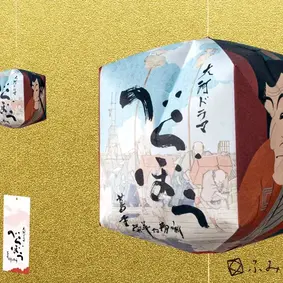 大河ドラマ
べらぼう
蔦重栄華乃夢噺
べらぼう
ふみ